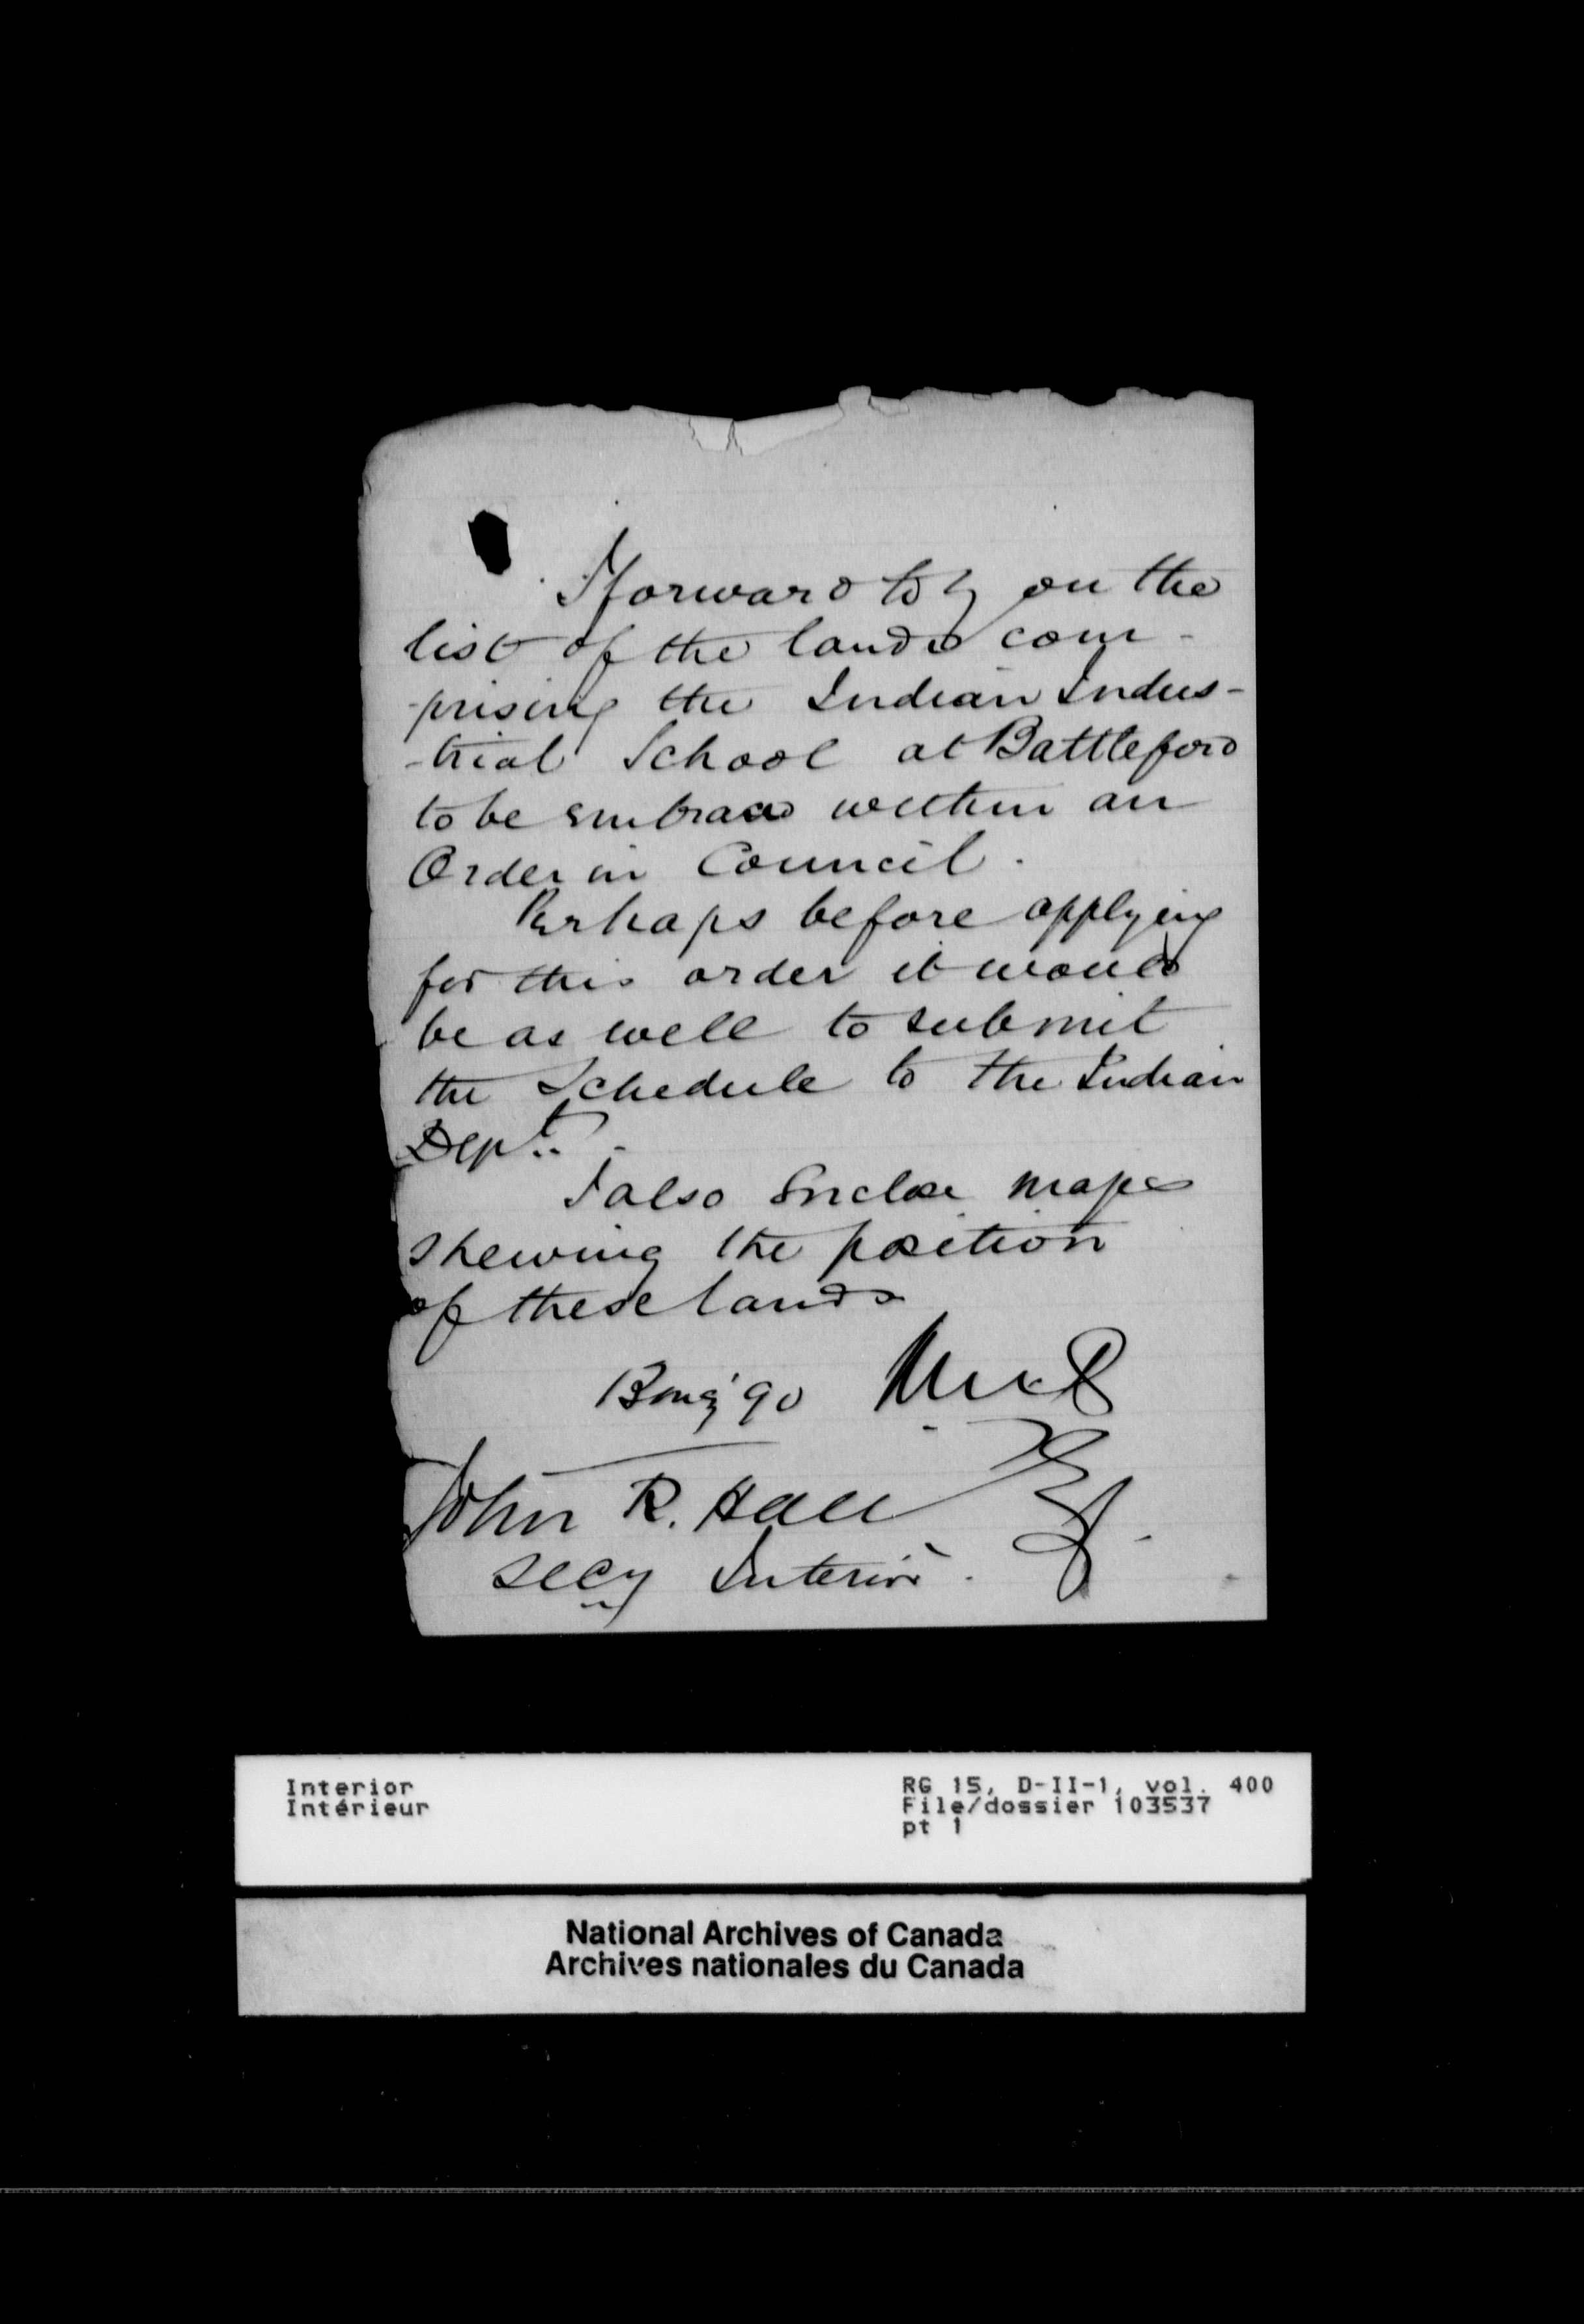 I forward to you the
list of the lands com-
-prising the Indian Indus-
-trial School at Battleford
to be embraced within an
Order in Council.
Perhaps before applying
for this order it would
be as well to submit
the Schedule to the Indian
Dept.
I also Enclose maps
shewing the position
of these lands
90
John R. Hall
Secy Interior.
Interior
Intérieur
RG 15, D-II-1, vol. 400
File/dossier 103537
pt 1
National Archives of Canada
Archives nationales du Canada